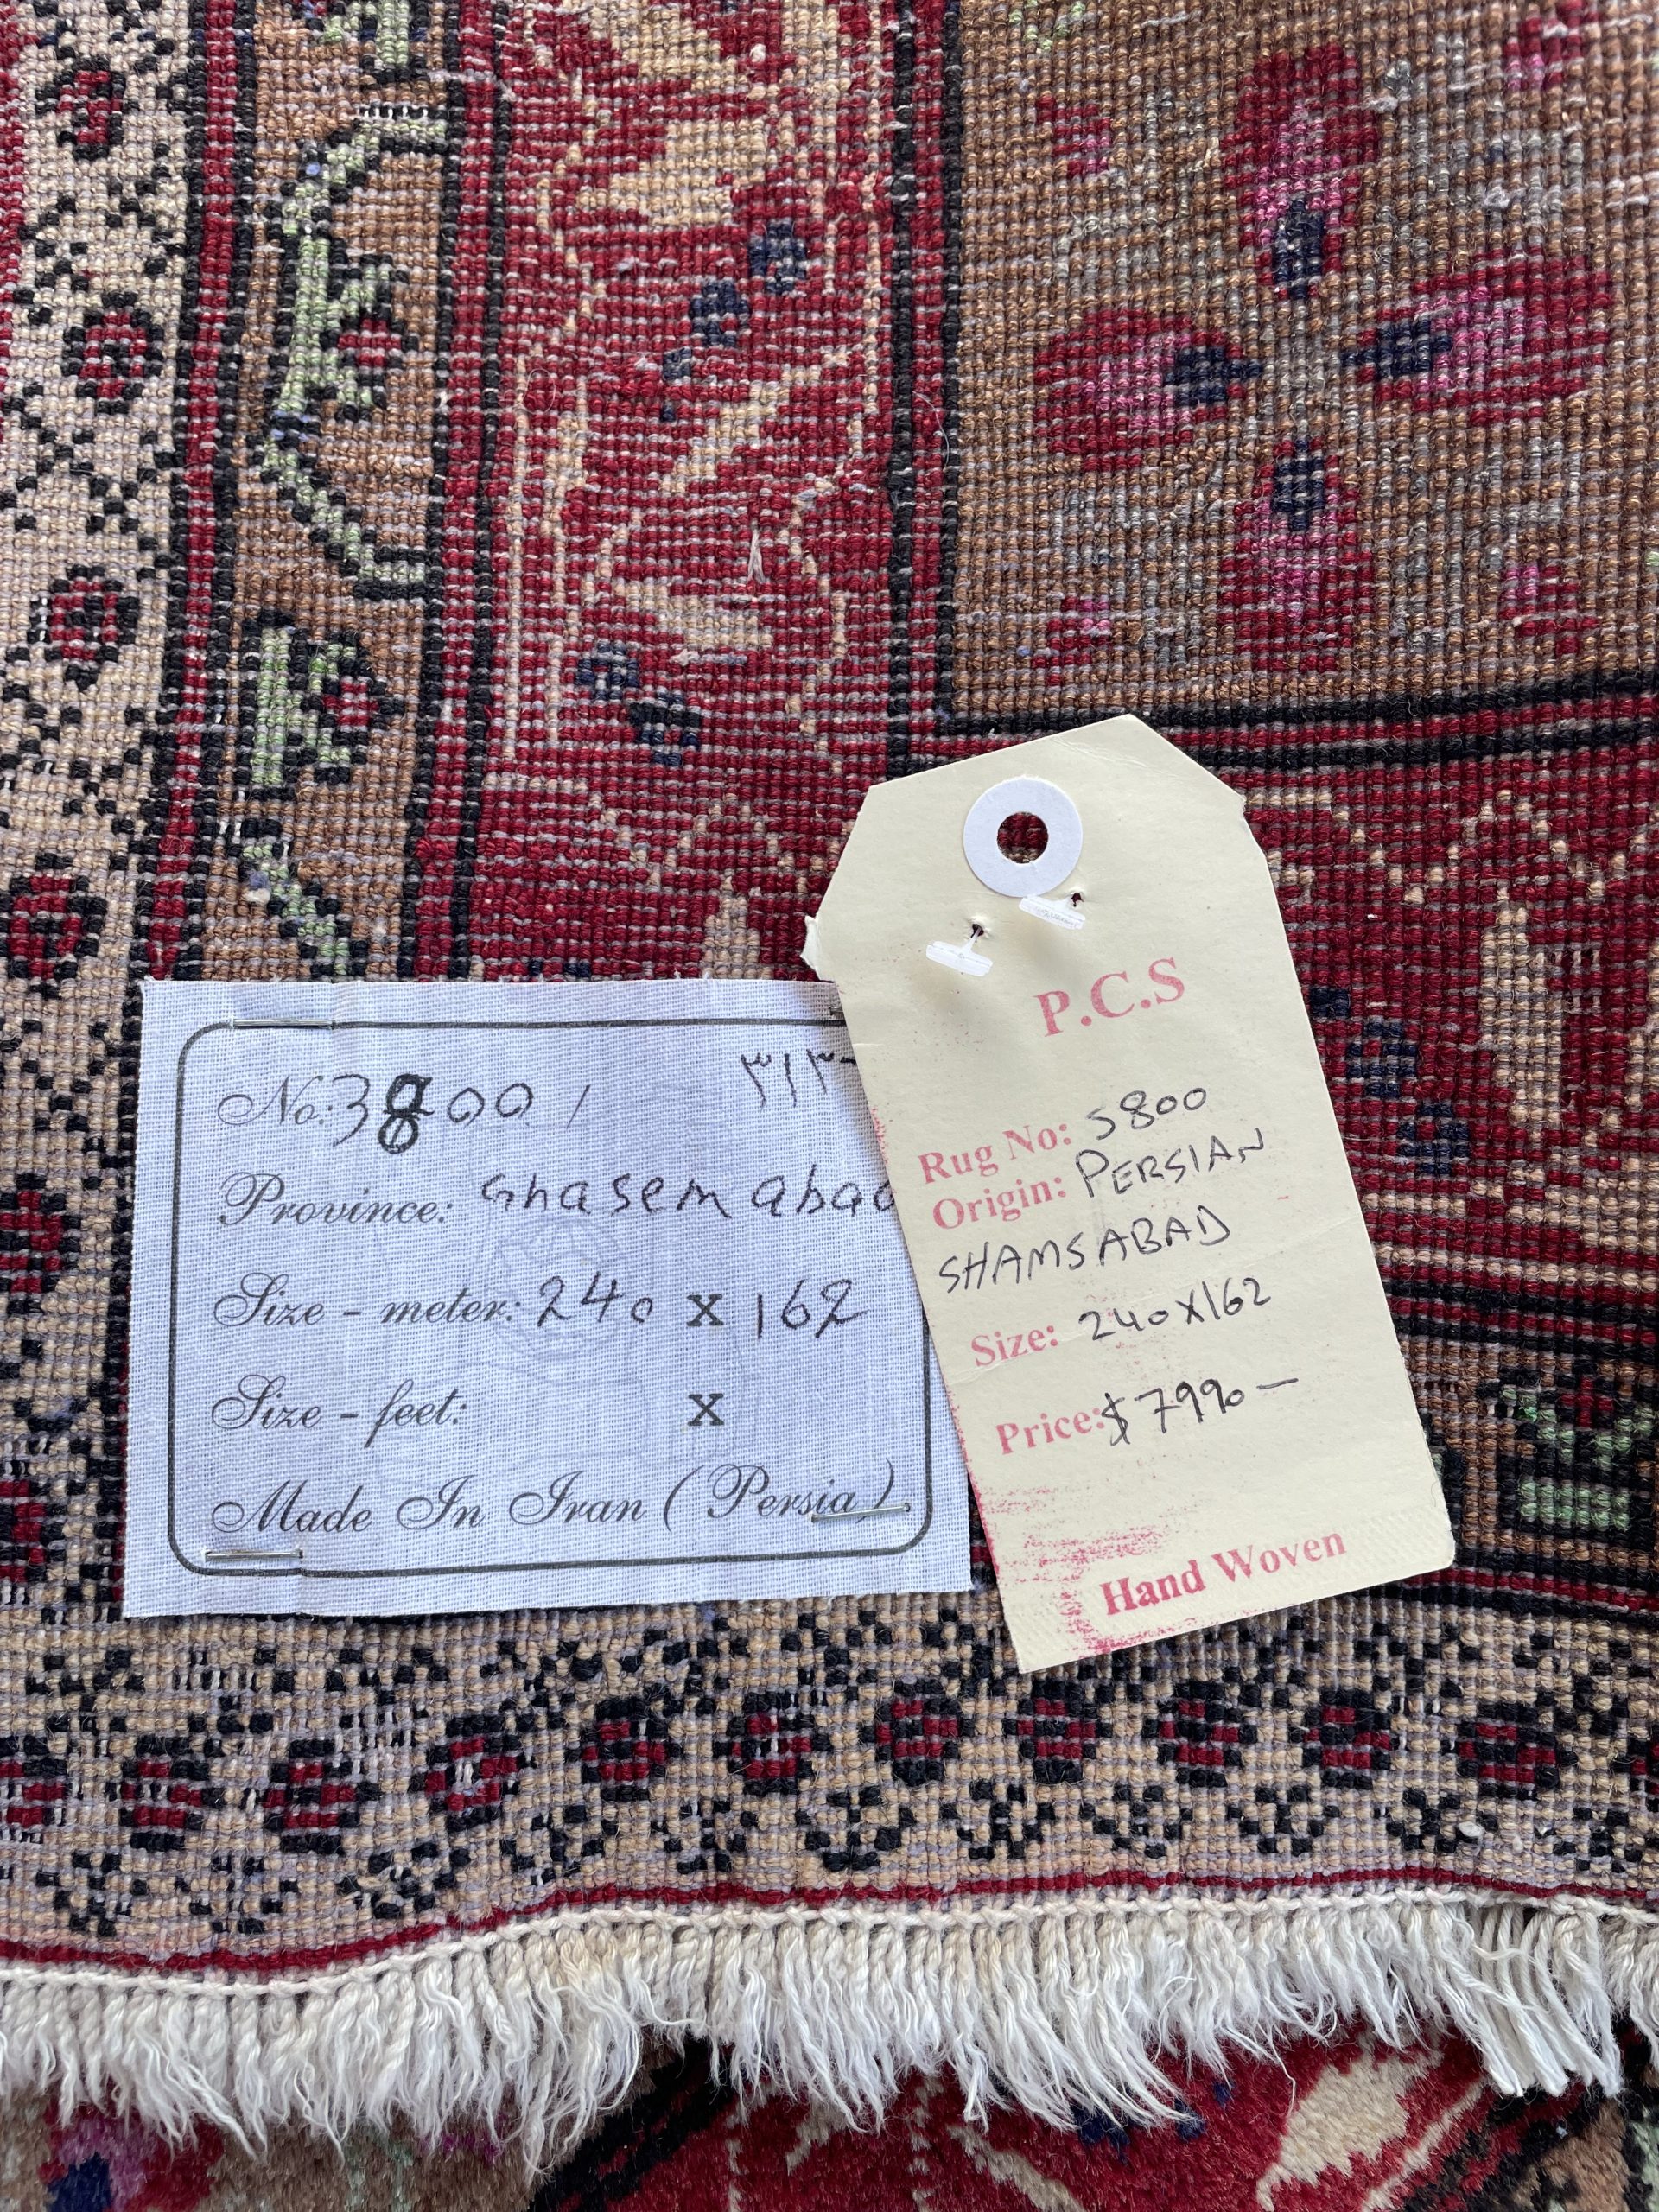 No.: 3800 /
Province: Ghasem abad
Size - meter: 240 x 162
Size - feet: x
Made In Iran (Persia)
P.C.S
Rug No: 5800
Origin: PERSIAN
SHAMSABAD
Size: 240x162
Price: $7990 —
Hand Woven